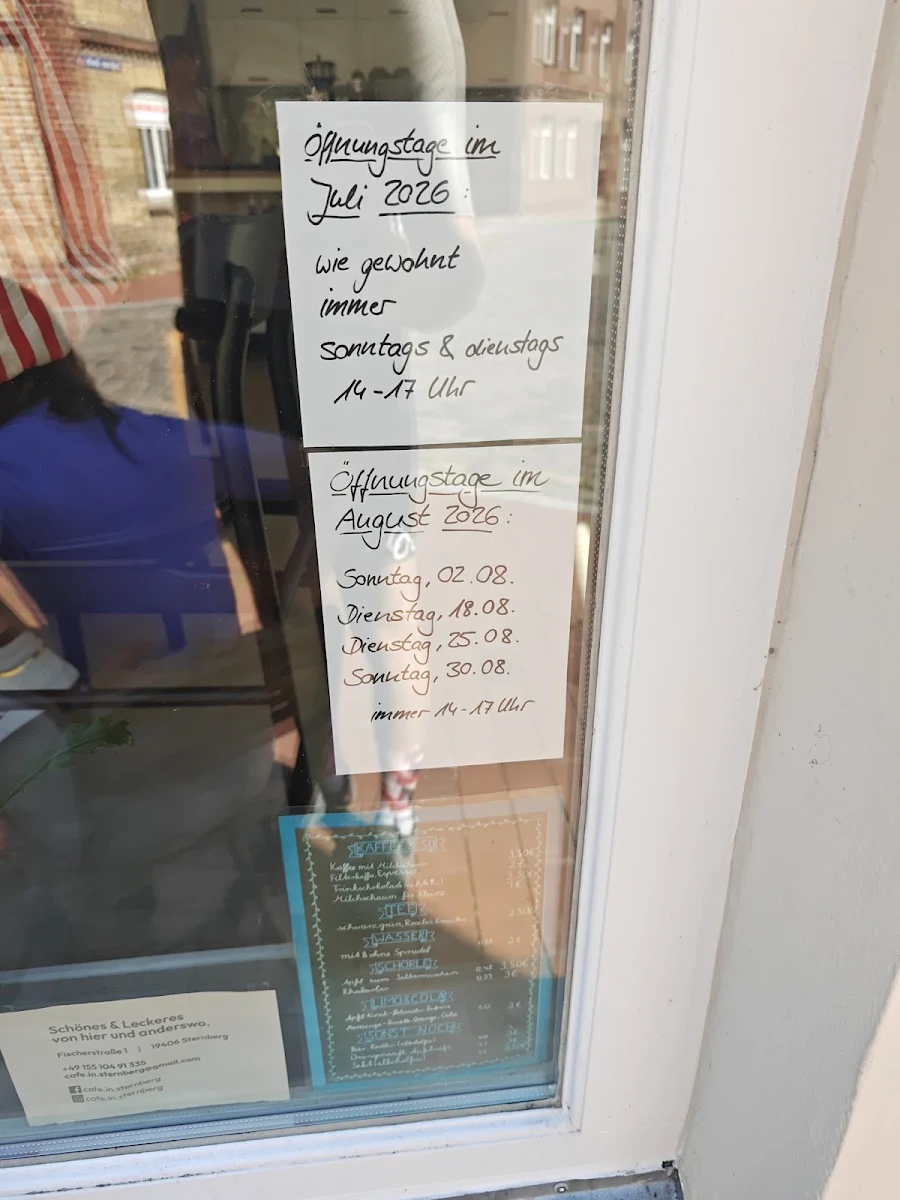 Öffnungstage im
Juli 2026:
wie gewohnt
immer
sonntags & dienstags
14-17 Uhr
Öffnungstage im
August 2026:
Sonntag, 02.08.
Dienstag, 18.08.
Dienstag, 25.08.
Sonntag, 30.08.
immer 14-17 Uhr
Kaffee mit Milchschaum
Filterkaffee, Espresso
Trinkschokolade
Milchschaum für Kleine
TEE
schwarz, grün,
WASSER 2€
mit & ohne Sprudel
SCHORLE
Apfel zum Selbermischen 3,50€
Rhabarber 3€
LIMO & COLA 3€
SONST NOCH
Schönes & Leckeres
von hier und anderswo.
Fischerstraße 1 | 19406 Sternberg
+49 155 104 91 335
cafe.in.sternberg@gmail.com
cafe.in.sternberg
cafe.in.sternberg